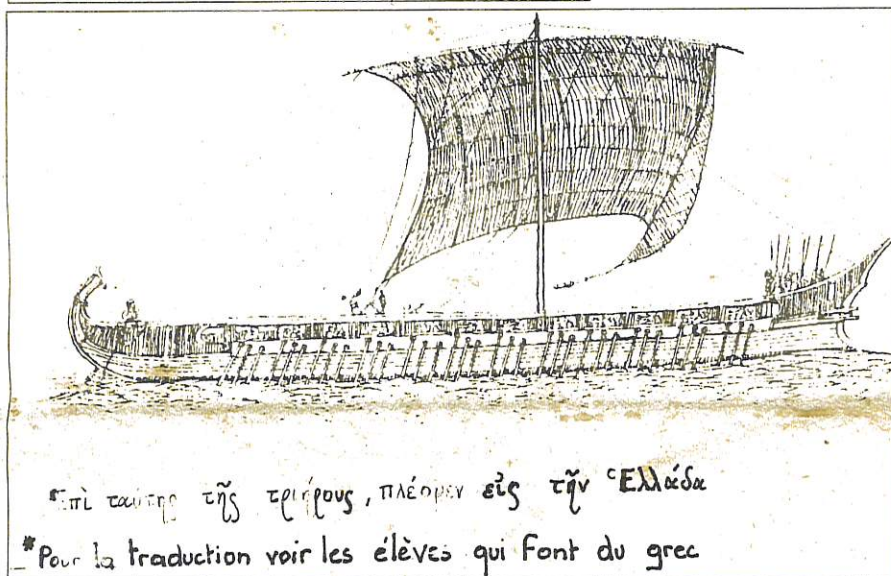 *Ἐπὶ ταύτης τῆς τριήρους, πλέομεν εἰς τῆν Ἑλλάδα
*Pour la traduction voir les élèves qui font du grec